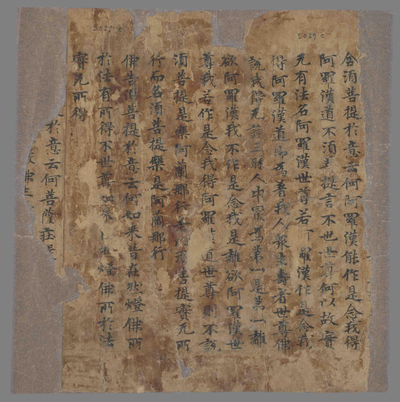 含須菩提於意云何阿羅漢能作是念我得
阿羅漢道不須菩提言不也世尊何以故實
无有法名阿羅漢世尊若阿羅漢作是念我
得阿羅漢道即為著我人眾生壽者世尊佛
說我得无諍三昧人中最為第一是第一離
欲阿羅漢我不作是念我是離欲阿羅漢世
尊我若作是念我得阿羅 道世尊則不說
須菩提是樂阿蘭那行者 須菩提實无所
行而名須菩提樂是阿蘭那行
佛告須菩提於意云何如來昔在然燈佛所
於法有所得不世尊如來 然燈佛所於法
實无所得
於意云何菩薩莊